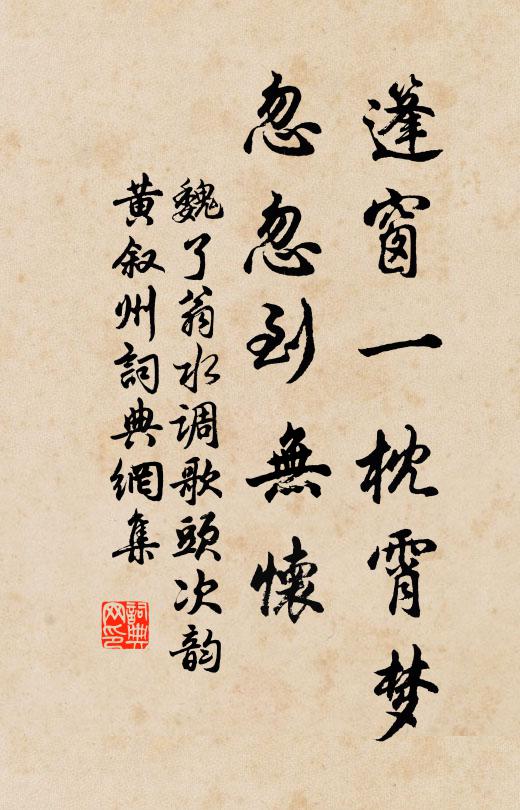 蓬窗一枕霄梦
忽忽到無懷
魏了翁水调歌頭次韵
黄叙州詞典網集
詞典
网印